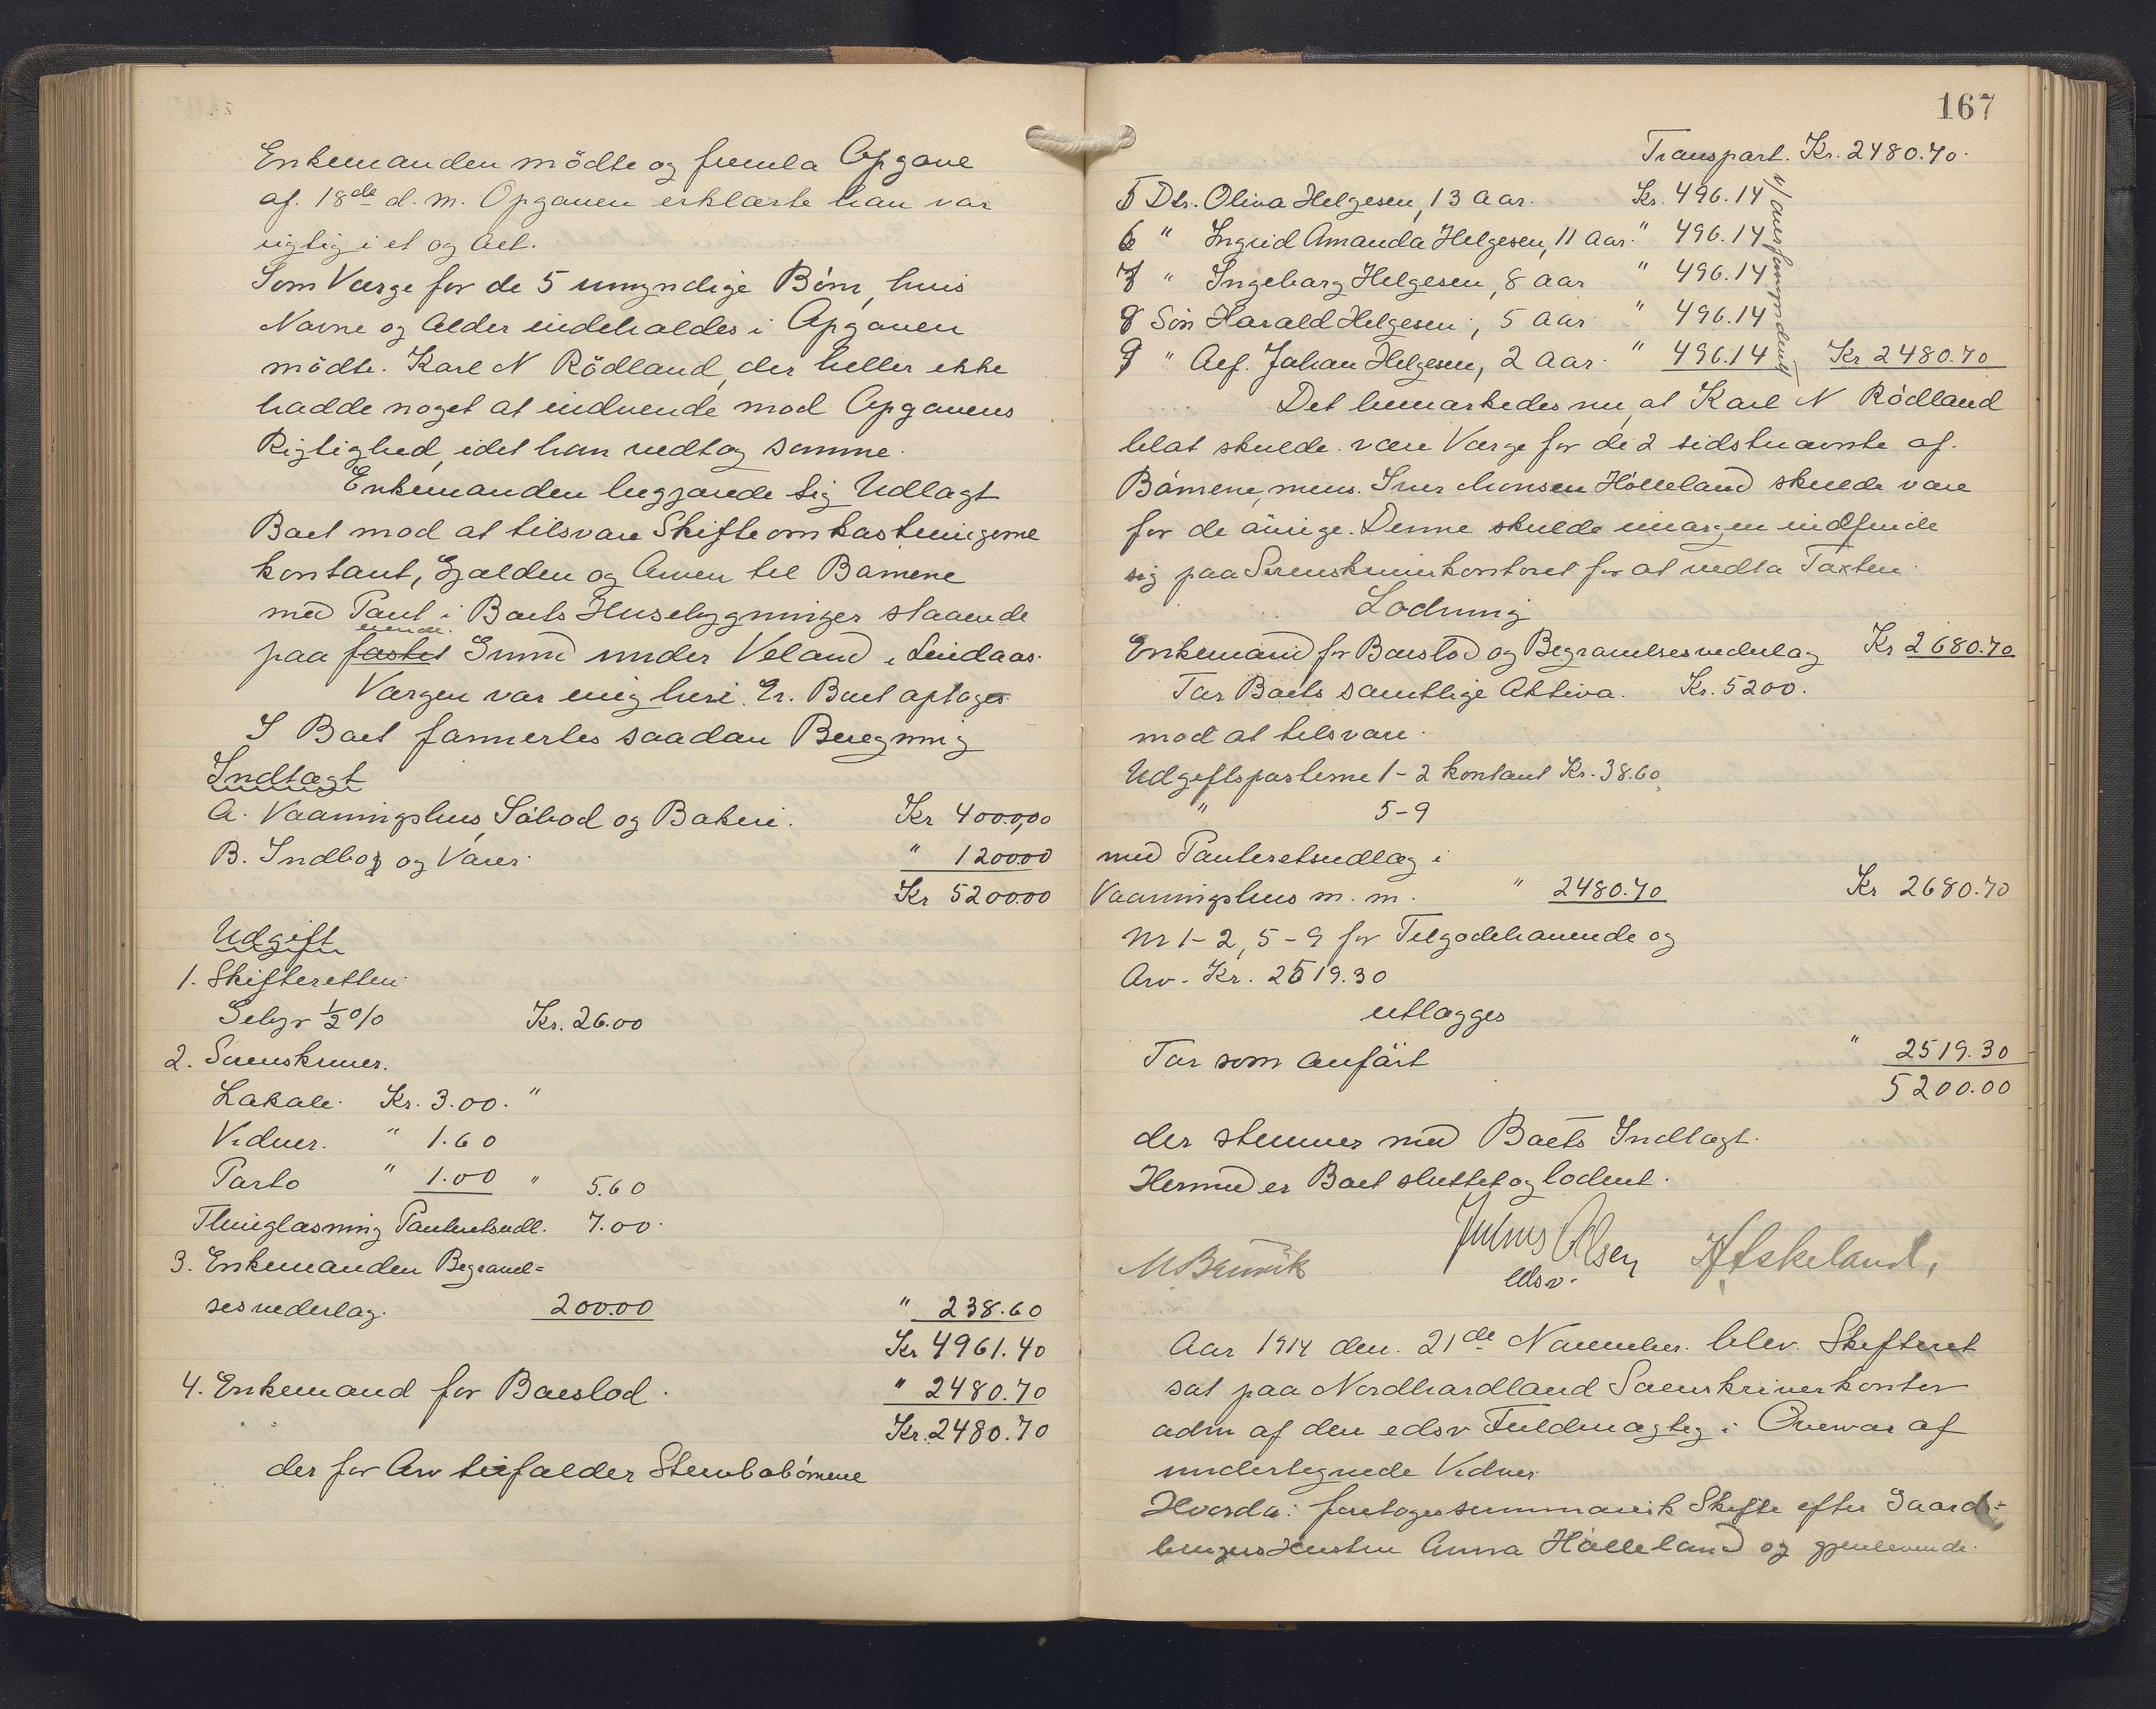 Enkemanden mödte og fremla Opgave
af 18de d. m. Opgaven erklærte han var
rigtig i et og alt.
Som Værge for de 5 umyndige Börn, hvis
Navne og Alder indeholdes i Opgaven
mödte Karl N Rödland, der heller ikke
hadde noget at indvende mod Opgavens
Rigtighed, idet han vedtog samme.
Enkemanden begjærede sig Udlagt
Boet mod at tilsvare Skifteomkostningerne
kontant, Gjælden og Arven til Börnene
med Pant i Boets Husebygninger staaende
eiende
paa fæstet Grund under Veland i Lindaas.
Værgen var enig heri. Er. Boet optages
I Boet formertes saadan Beregning
Indtægt
A. Vaaningshus, Söbod og Bakeri. Kr 4000,00
B. Indbo og Varer. " 1200.00
Kr 5200.00
Udgift
1. Skifteretten.
Gebyr ½ % Kr. 26.00
2. Sorenskriver.
Lokale. Kr. 3.00. "
Vidner. " 1.60
Porto " 1.00 " 5.60
Thinglæsning Panteretsudl. 7.00.
3. Enkemanden Begravel=
sesvederlag. 200.00 " 238.60
Kr 4961.40
4. Enkemand for Boeslod. " 2480.70
Kr. 2480.70
der for Arv tilfalder Stervbobörnene
167
Transport. Kr. 2480.70.
5 Dtr. Oliva Helgesen, 13 Aar. Kr. 496.14
6 " Ingrid Amanda Helgesen, 11 Aar. " 496.14
7 " Ingeborg Helgesen, 8 Aar " 496.14
8 Sön Harald Helgesen, 5 Aar " 496.14
9 " Alf Johan Helgesen, 2 Aar. " 496.14 Kr 2480.70
Det bemærkedes nu, at Karl N Rödland
blot skulde være Værge for de 2 sidstnævnte af
Börnene, mens Iver Monsen Hölleland skulde være
for de övrige. Denne skulde imorgen indfinde
sig paa Sorenskriverkontoret for at vedta Taxten.
Lodning
Enkemand for Boeslod og Begravelsesvederlag Kr 2680.70
Tar Boets samtlige Aktiva. Kr. 5200.
mod at tilsvare.
Udgiftsposterne 1-2 kontant Kr. 38.60
" 5-9
med Panteretsudlæg i
Vaaningshus m. m. " 2480.70 Kr 2680.70
Nr 1-2, 5-9 for Tilgodehavende og
Arv. Kr. 2519.30
utlægges
Tar som anfört " 2519.30
5200.00
der stemmer med Boets Indtægt.
Hermed er Boet sluttet og loddet.
Julius Olsen
edsv.
Aar 1914 den 21de November blev Skifteret
sat paa Nordhordland Sorenskriverkontor
adm af den edsv Fuldmægtig i Overvær af
undertegnede Vidner
Hvorda: foretoges summarisk Skifte efter Gaard=
brugers Hustru Anna Hölleland og gjenlevende